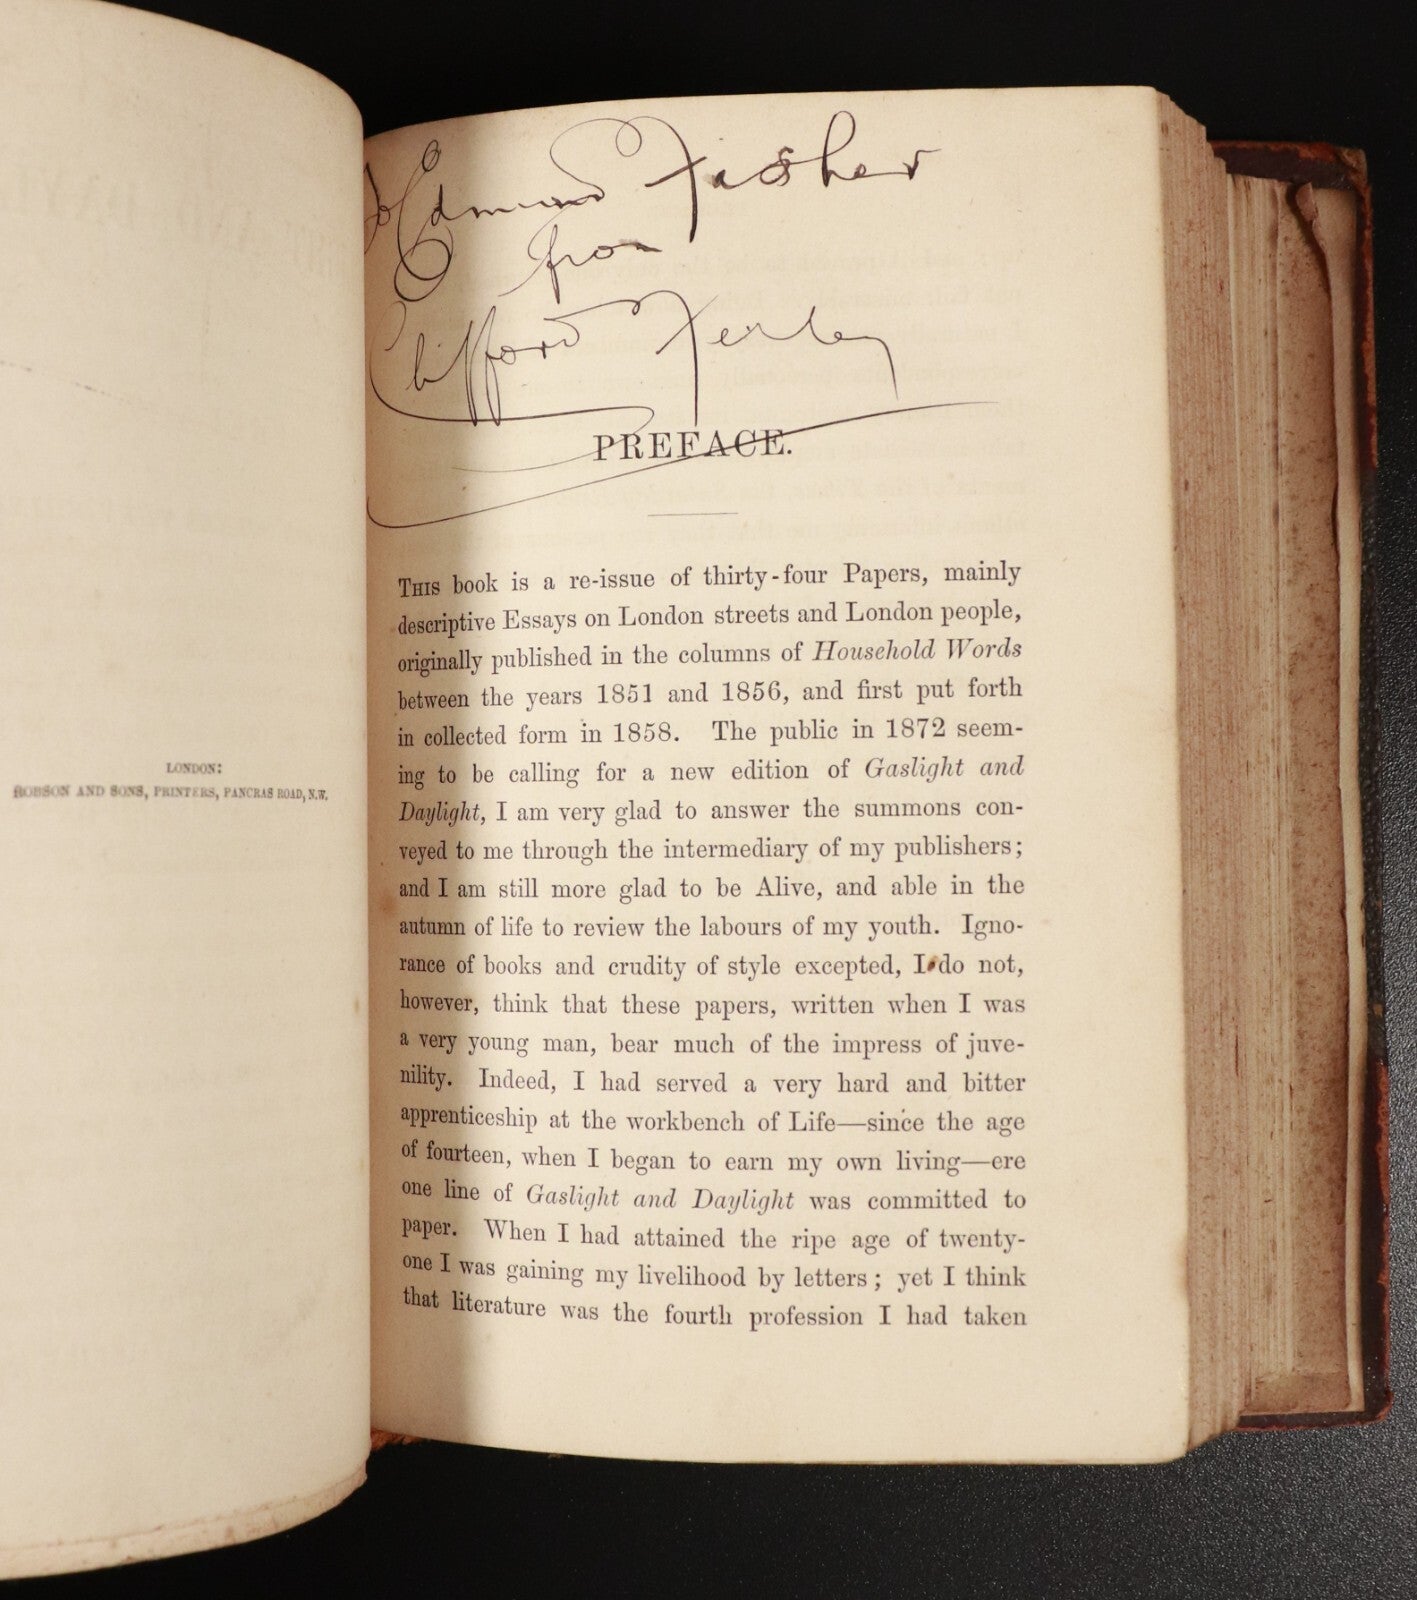 LONDON:
ROBSON AND SONS, PRINTERS, PANCRAS ROAD, N.W.
to Edmund Fissher
from
Clifford Ferley
PREFACE.
THIS book is a re-issue of thirty-four Papers, mainly
descriptive Essays on London streets and London people,
originally published in the columns of Household Words
between the years 1851 and 1856, and first put forth
in collected form in 1858. The public in 1872 seem-
ing to be calling for a new edition of Gaslight and
Daylight, I am very glad to answer the summons con-
veyed to me through the intermediary of my publishers;
and I am still more glad to be Alive, and able in the
autumn of life to review the labours of my youth. Igno-
rance of books and crudity of style excepted, I do not,
however, think that these papers, written when I was
a very young man, bear much of the impress of juve-
nility. Indeed, I had served a very hard and bitter
apprenticeship at the workbench of Life—since the age
of fourteen, when I began to earn my own living—ere
one line of Gaslight and Daylight was committed to
paper. When I had attained the ripe age of twenty-
one I was gaining my livelihood by letters; yet I think
that literature was the fourth profession I had taken